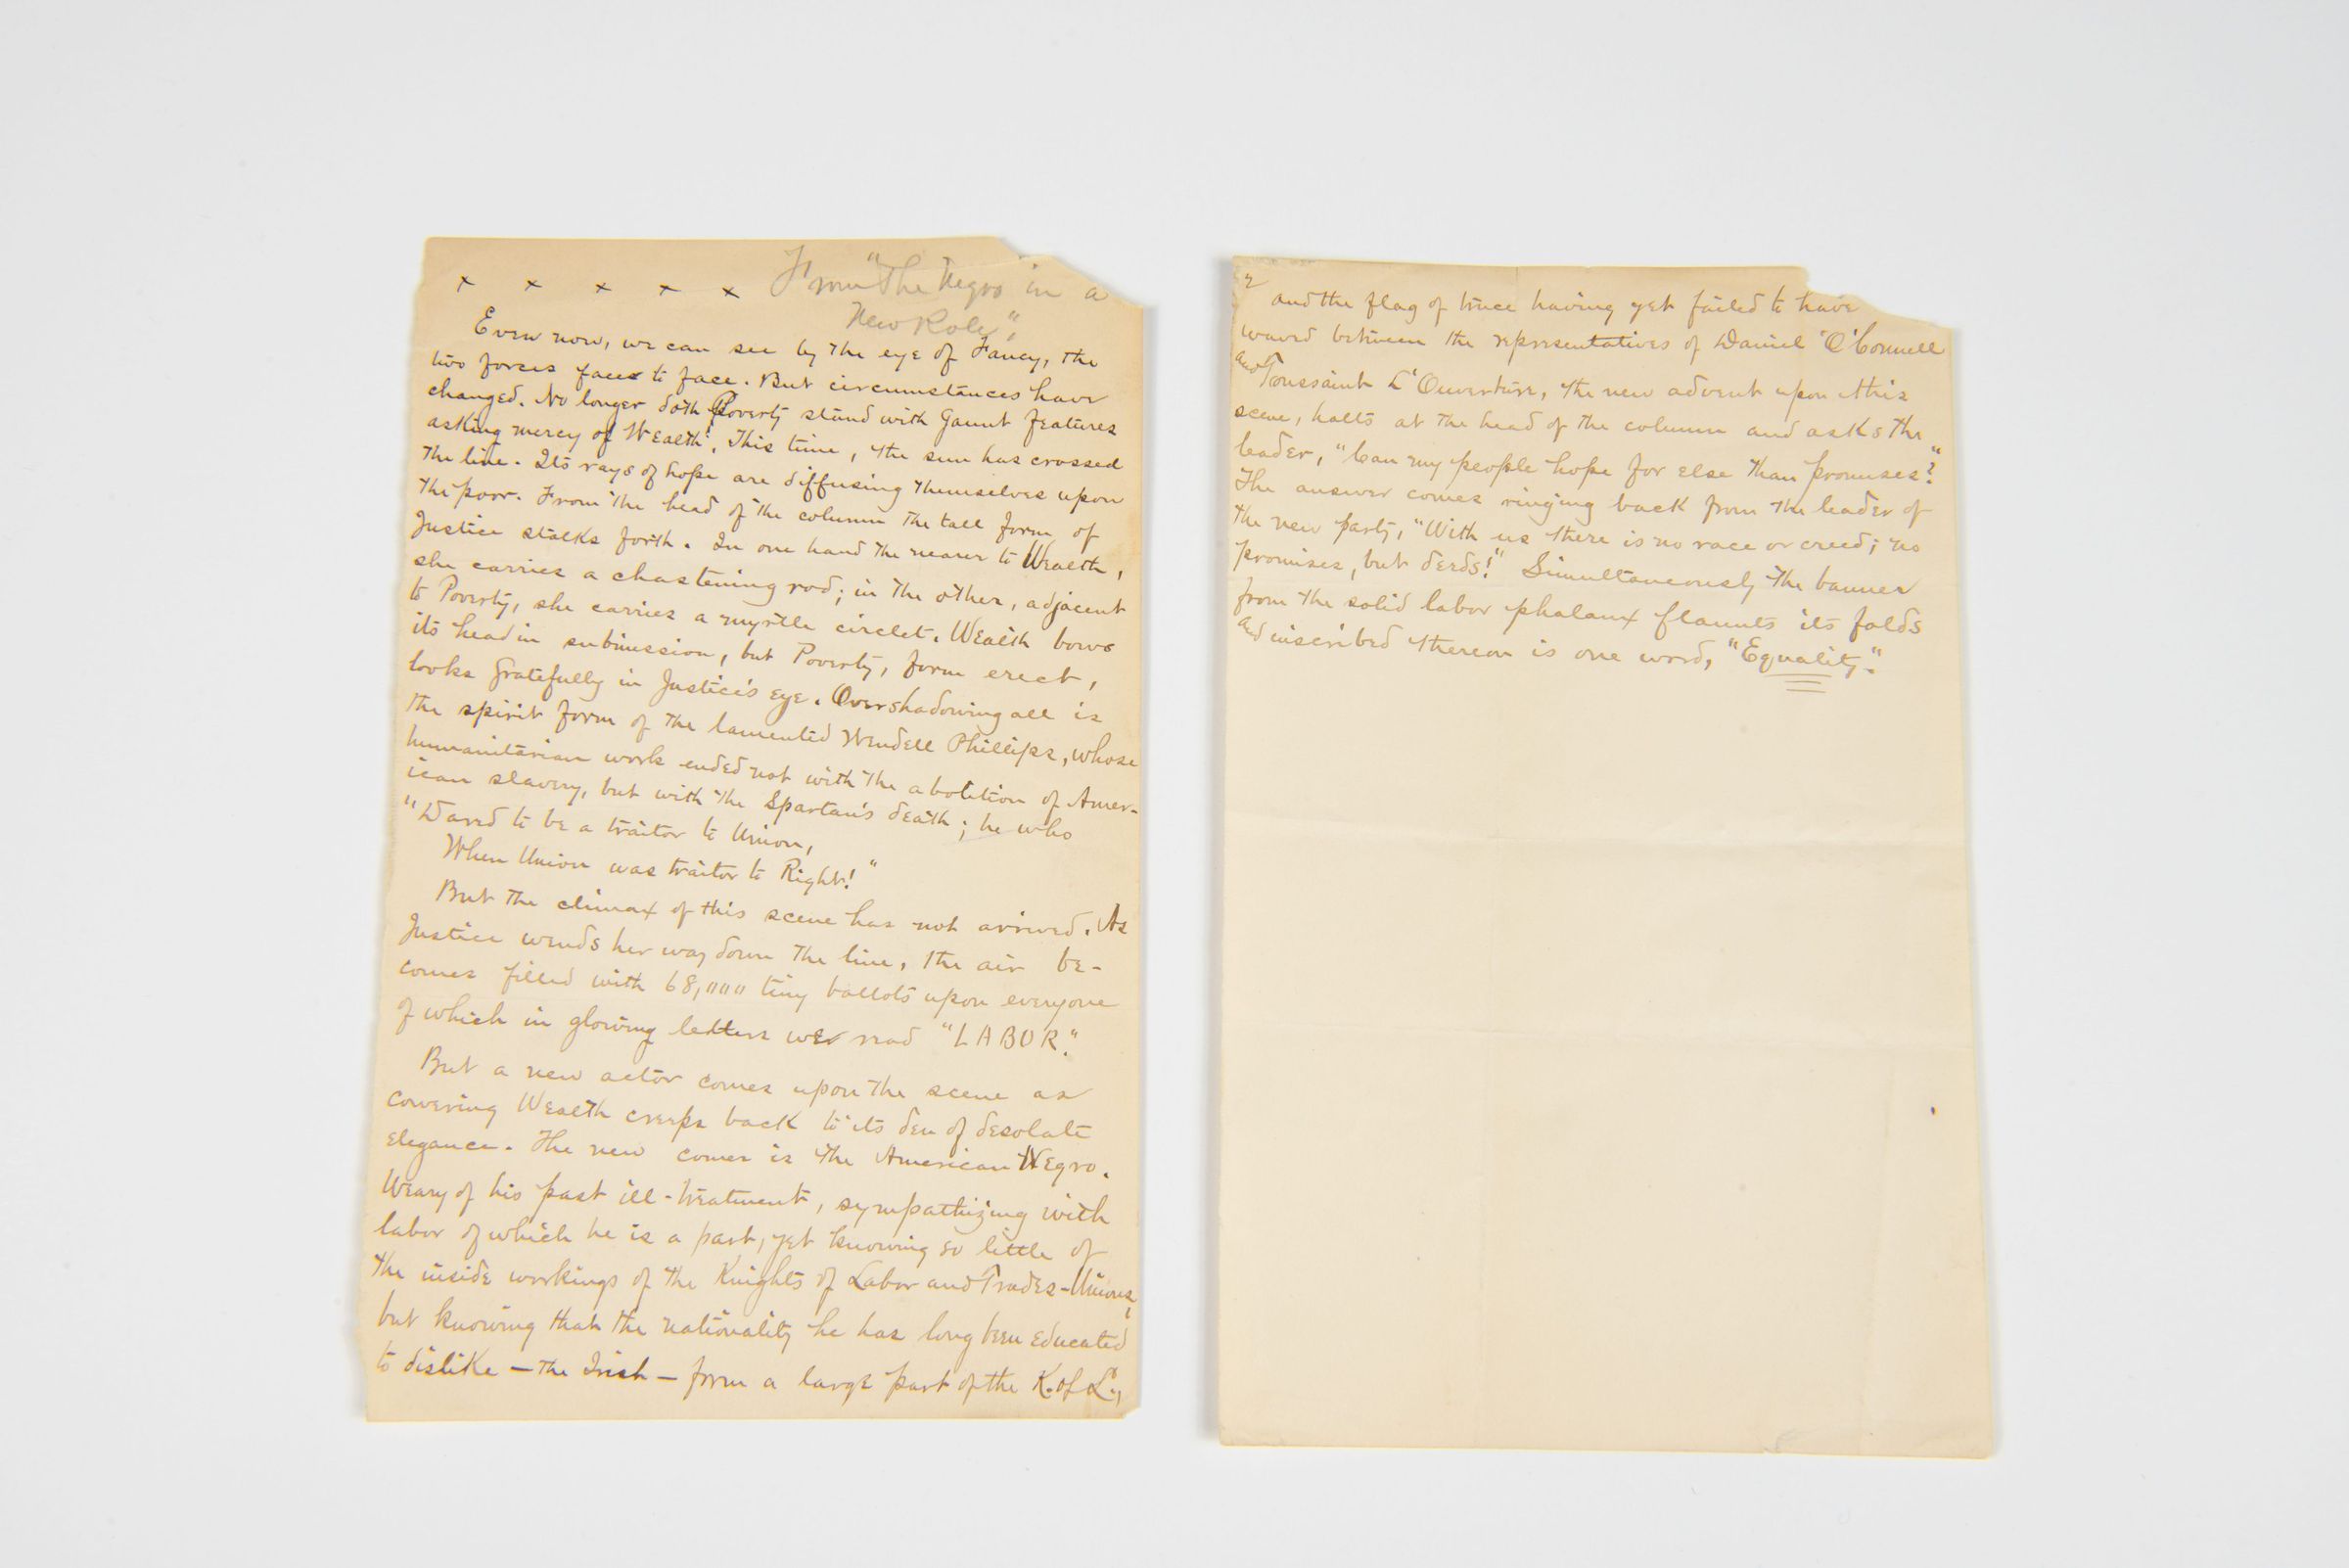 x x x x x From "The Negro in a
New Role";
Even now, we can see by the eye of Fancy, the
two forces face to face. But circumstances have
changed. No longer doth Poverty stand with gaunt features
asking mercy of Wealth! This time, the sun has crossed
the line. Its rays of hope are diffusing themselves upon
the poor. From the head of the column the tall form of
Justice stalks forth. In one hand the nearer to Wealth,
she carries a chastening rod; in the other, adjacent
to Poverty, she carries a myrtle circlet. Wealth bows
its head in submission, but Poverty, form erect,
looks gratefully in Justice's eye. Overshadowing all is
the spirit form of the lamented Wendell Phillips, whose
humanitarian work ended not with the abolition of Amer-
ican slavery, but with the Spartan's death; he who
"Dared to be a traitor to Union,
When Union was traitor to Right!"
But the climax of this scene has not arrived. As
Justice wends her way down the line, the air be-
comes filled with 68,000 tiny ballots upon everyone
of which in glowing letters we read "LABOR."
But a new actor comes upon the scene as
cowering Wealth creeps back to its den of desolate
elegance. The new comer is the American Negro.
Weary of his past ill-treatment, sympathizing with
labor of which he is a part, yet knowing so little of
the inside workings of the Knights of Labor and Trades-Unions,
but knowing that the nationality he has long been educated
to dislike — the Irish — form a large part of the K. of L.,
2
and the flag of truce having yet failed to have
waved between the representatives of Daniel O'Connell
and Toussaint L'Ouverture, the new advent upon this
scene, halts at the head of the column and asks the
leader, "Can my people hope for else than promises?"
The answer comes ringing back from the leader of
the new party, "With us there is no race or creed; no
promises, but deeds!" Simultaneously the banner
from the solid labor phalanx flaunts its folds
and inscribed thereon is one word, "Equality."